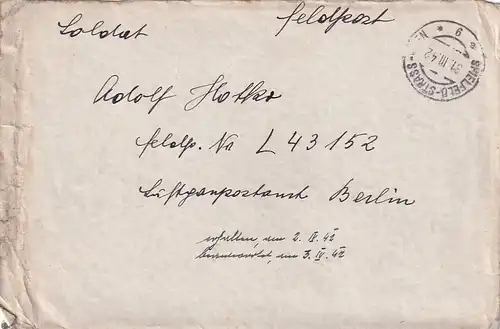 Soldat Feldpost
SPIELFELD-STRASS
31.III.42
* 9 *
Adolf Hotko
feldp. Nr L 43152
Luftgaupostamt Berlin
erhalten, am 2. IV. 42
beantwortet, am 3. IV. 42